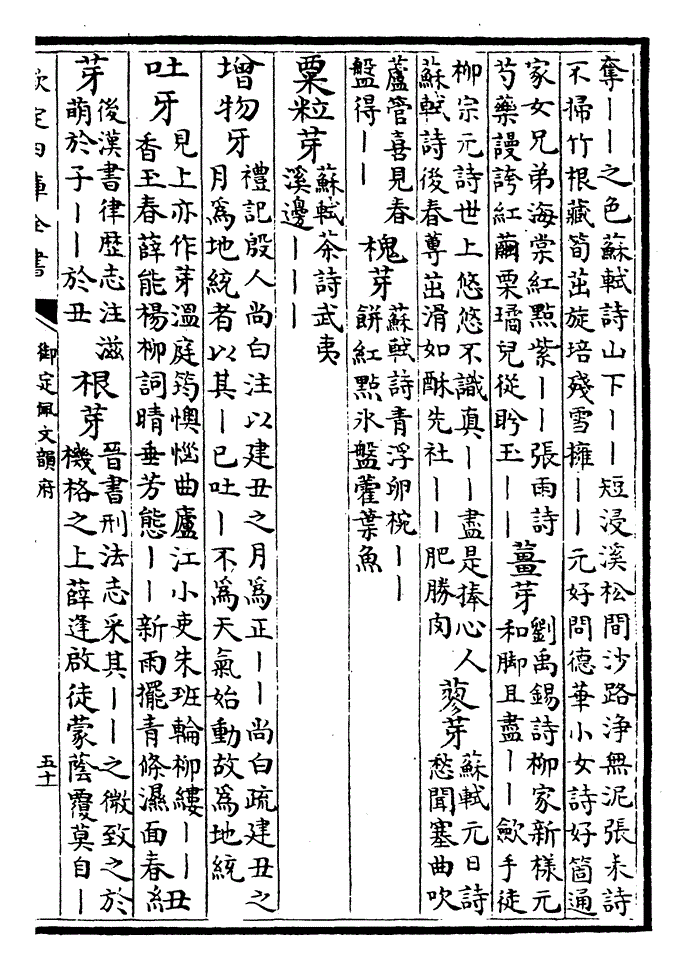 奪丨丨之色蘇軾詩山下丨丨短浸溪松間沙路浄無泥張耒詩
不掃竹根藏筍茁旋培殘雪擁丨丨元好問德華小女詩好箇通
家女兄弟海棠紅㸃紫丨丨張雨詩
芍藥謾誇紅繭栗璚兒從盼玉丨丨
薑芽
劉禹錫詩柳家新様元
和脚且盡丨丨歛手徒
柳宗元詩世上悠悠不識真丨丨盡是捧心人
蘇軾詩後春蓴茁滑如酥先社丨丨肥勝肉
蓼芽
蘇軾元日詩
愁聞塞曲吹
蘆管喜見春
盤得丨丨
槐芽
蘇軾詩青浮卵椀丨丨
餅紅㸃氷盤藿葉魚
粟粒芽
蘇軾茶詩武夷
溪邊丨丨丨
增物牙
禮記殷人尚白注以建丑之月爲正丨丨尚白疏建丑之
月爲地統者以其丨已吐丨不爲天氣始動故爲地統
吐牙
見上亦作芽溫庭筠懊惱曲廬江小吏朱斑輪柳縷丨丨丑
香玉春薛能楊柳詞晴垂芳態丨丨新雨擺青條濕面春糺
芽
後漢書律歴志注滋
萌於子丨丨於丑
根芽
晉書刑法志采其丨丨之微致之於
機格之上薛逢啟徒蒙蔭覆莫自丨
欽定四庫全書
御定佩文韻府
五十